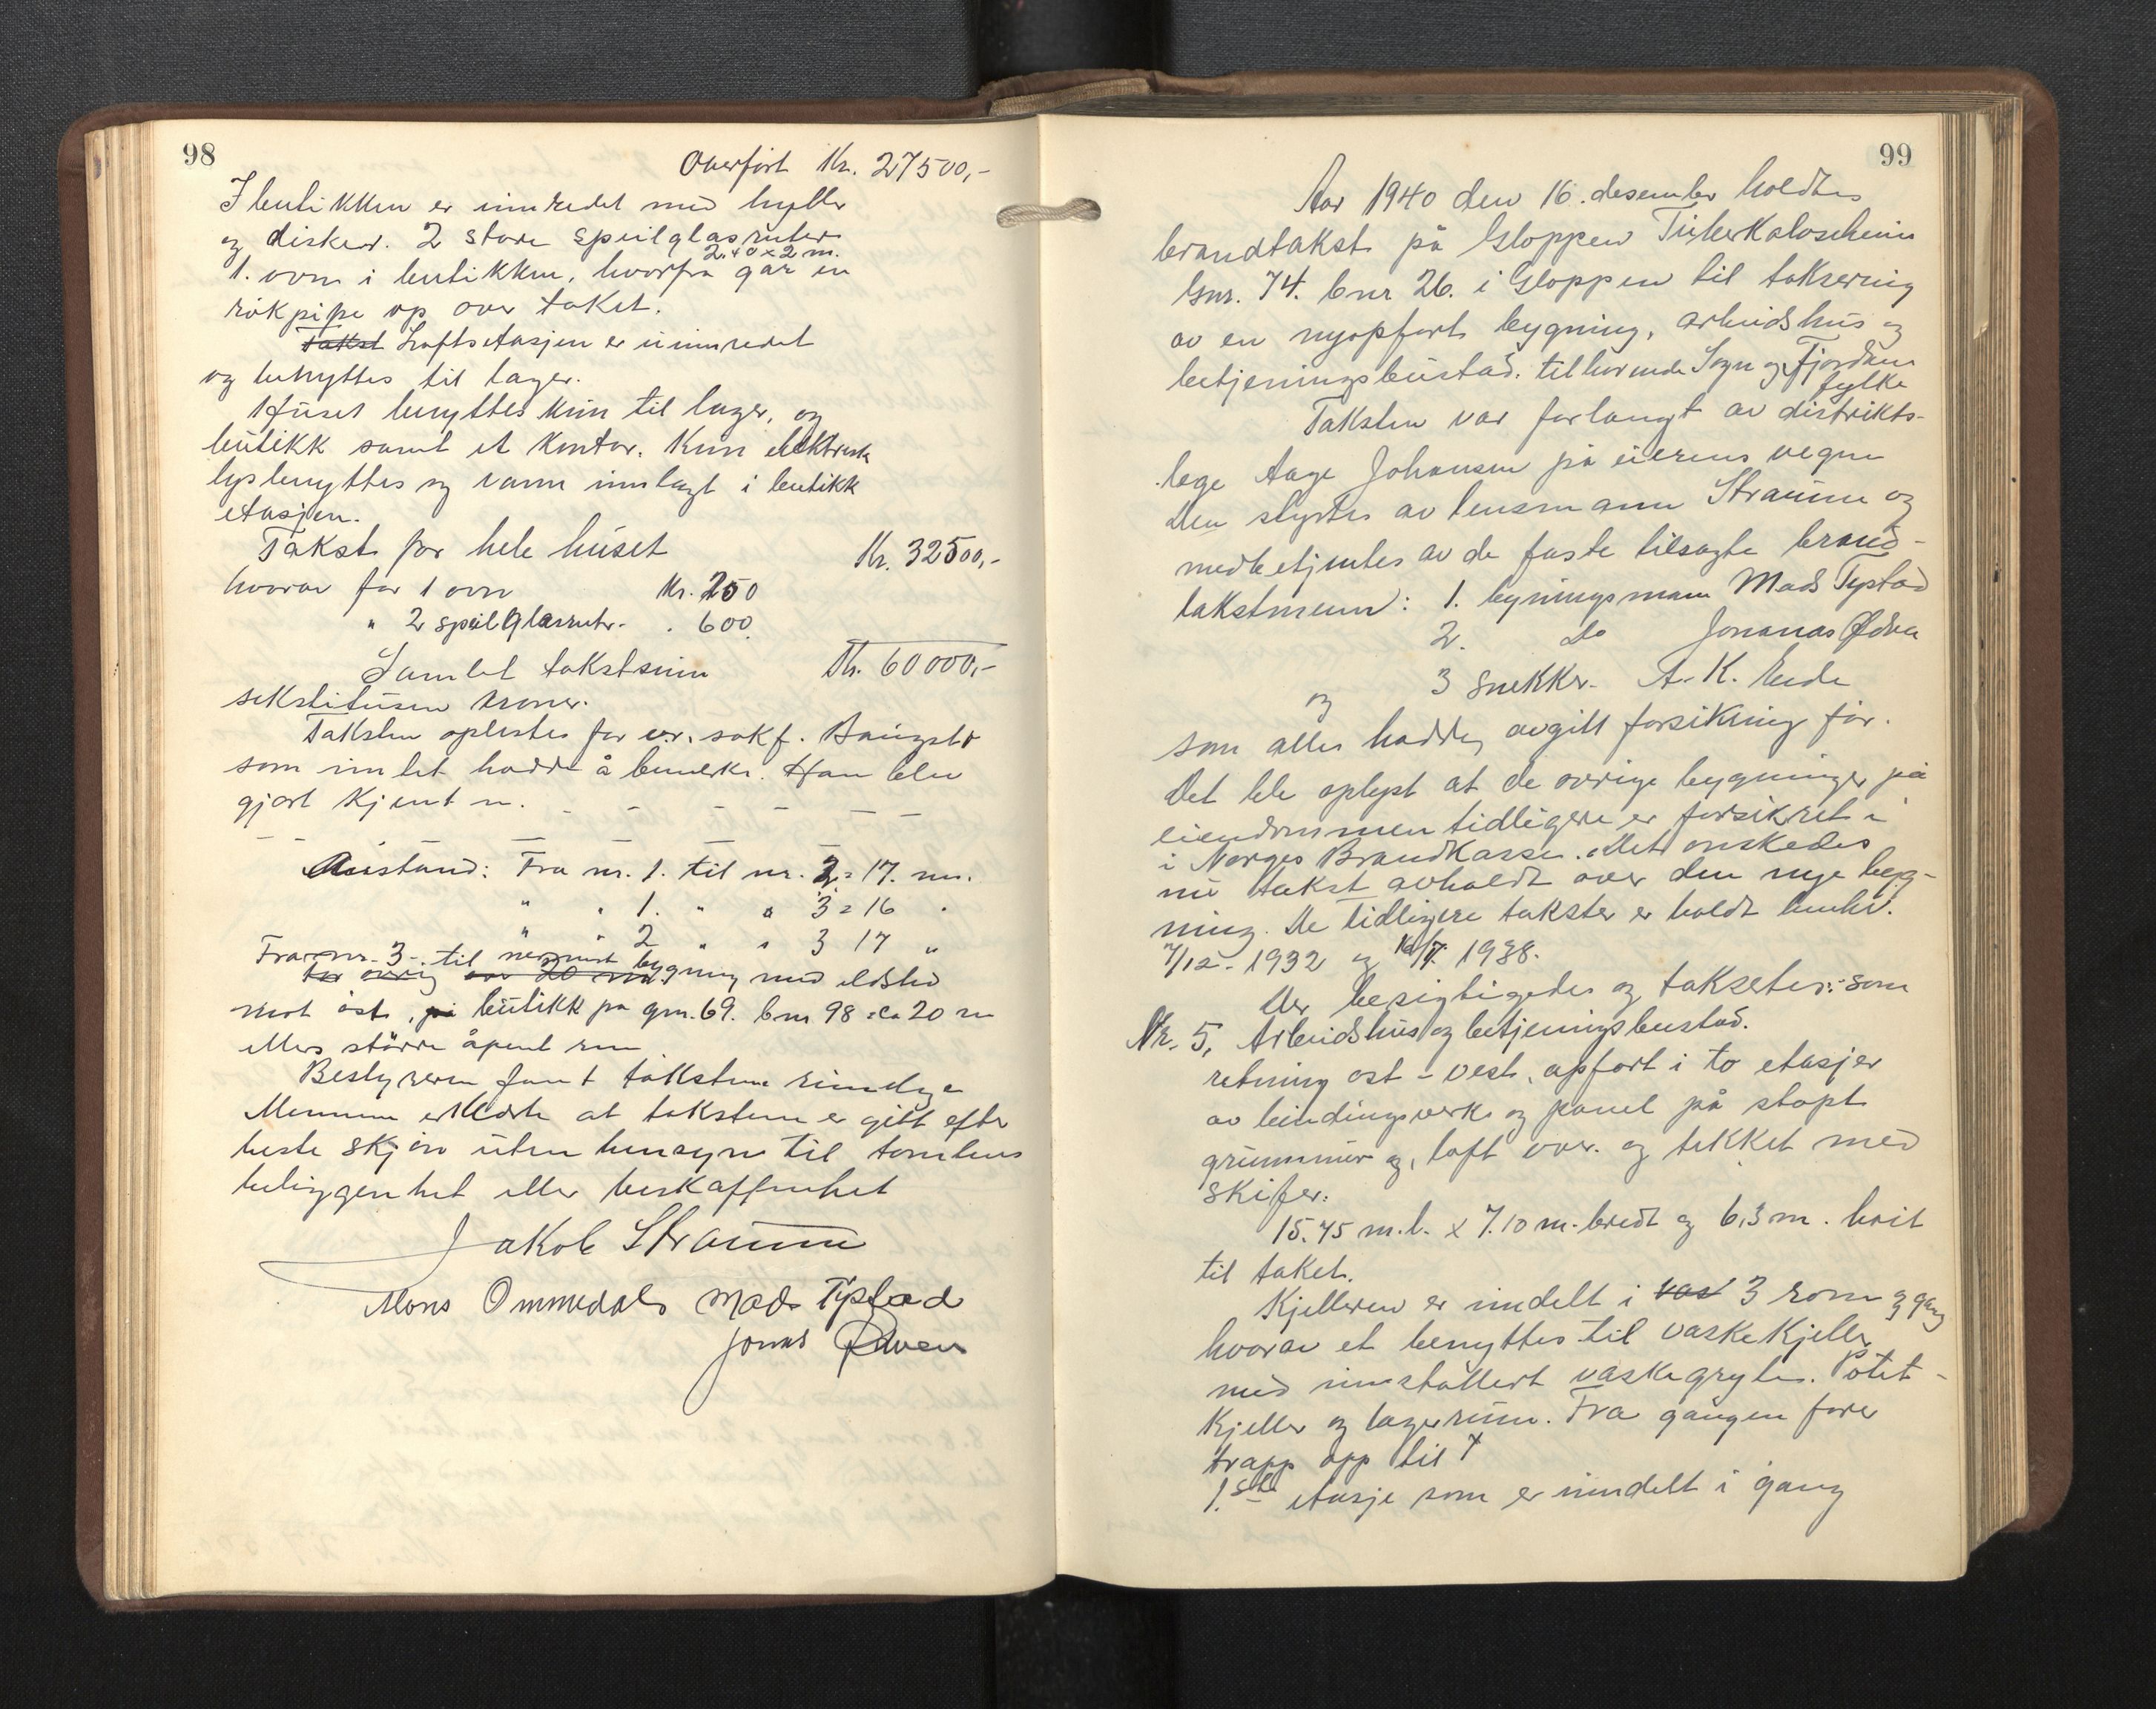 98
Overført Kr. 27500,-
I butikken er innredet med hyller
og disker. 2 store speilglasruter
2.40 x 2 m.
1. ovn i butikken, hvorfra går en
rökpipe op over taket.
Takst Loftsetasjen er uinnredet
og benyttes til lager.
Huset benyttes kun til lager, og
butikk samt et kontor. Kun elektrisk
lys benyttes og vann innlagt i butikk
etasjen.
Takst for hele huset Kr. 32500,-
hvorav for 1 ovn Kr. 250
" 2 speilglasruter - . 600
Samlet takstsum Kr. 60000,-
sekstitusen kroner.
Taksten oplestes for o.r. sakf.
som intet hadde å bemerke. Han blev
gjort kjent m.
Avstand: Fra nr. 1. til nr. 2 = 17. m.
" " 1. " " 3 = 16 "
" " 2 " " 3 17 "
Fra nr. 3 - til nermest bygning med eldsted
mot öst, på butikk på gnr. 69. bnr 98 = ca 20 m
ellers större åpent rum
Bestyreren fant taksten rimelige
Mennene erklærte at taksten er gitt efter
beste skjön uten hensyn til tomtens
beliggenhet eller beskaffenhet
Jakob Straume
Mons Ommedal Mads Tystad
Jonas Ødven
99
Aar 1940 den 16. desember holdtes
brandtakst på Gloppen Tuberkuloseheim
Gnr. 74. bnr 26. i Gloppen til taksering
av en nyopført bygning, arbeidshus og
betjeningsbustad. tilhørende Sogn og Fjordane
fylke
Taksten var forlangt av distrikts-
lege Aage Johansen på eierens vegne
Den styrtes av lensmann Straume og
medbetjentes av de faste tilsagte brand-
takstmenn: 1. bygningsmann Mads Tystad
2. do Jonas Ødven
og 3 snekker A. K. Eide
som alle hadde avgitt forsikring før.
Det ble oplyst at de øvrige bygninger på
eiendommen tidligere er forsikret i
i Norges Brandkasse. Det ønskedes
nu takst avholdt over den nye byg-
ning. De tidligere takster er holdt henhv.
7/12 - 1932 og 16/7. 1938.
Der besigtigedes og takseertes: som
Nr. 5. Arbeidshus og betjeningsbustad.
retning ost - vest, opført i to etasjer
av bindingsverk og panel på støpt
grunnmur og, loft over. og tekket med
skifer.
15.75 m.l. x 7.10 m. bredt og 6,3 m. høit
til taket.
Kjelleren er inndelt i 3 rom og gang
hvorav et benyttes til vaskekjeller
med innstallert vaskegryte. Potet-
kjeller og lagerrum. Fra gangen fører
trapp opp til
1.ste etasje som er inndelt i gang